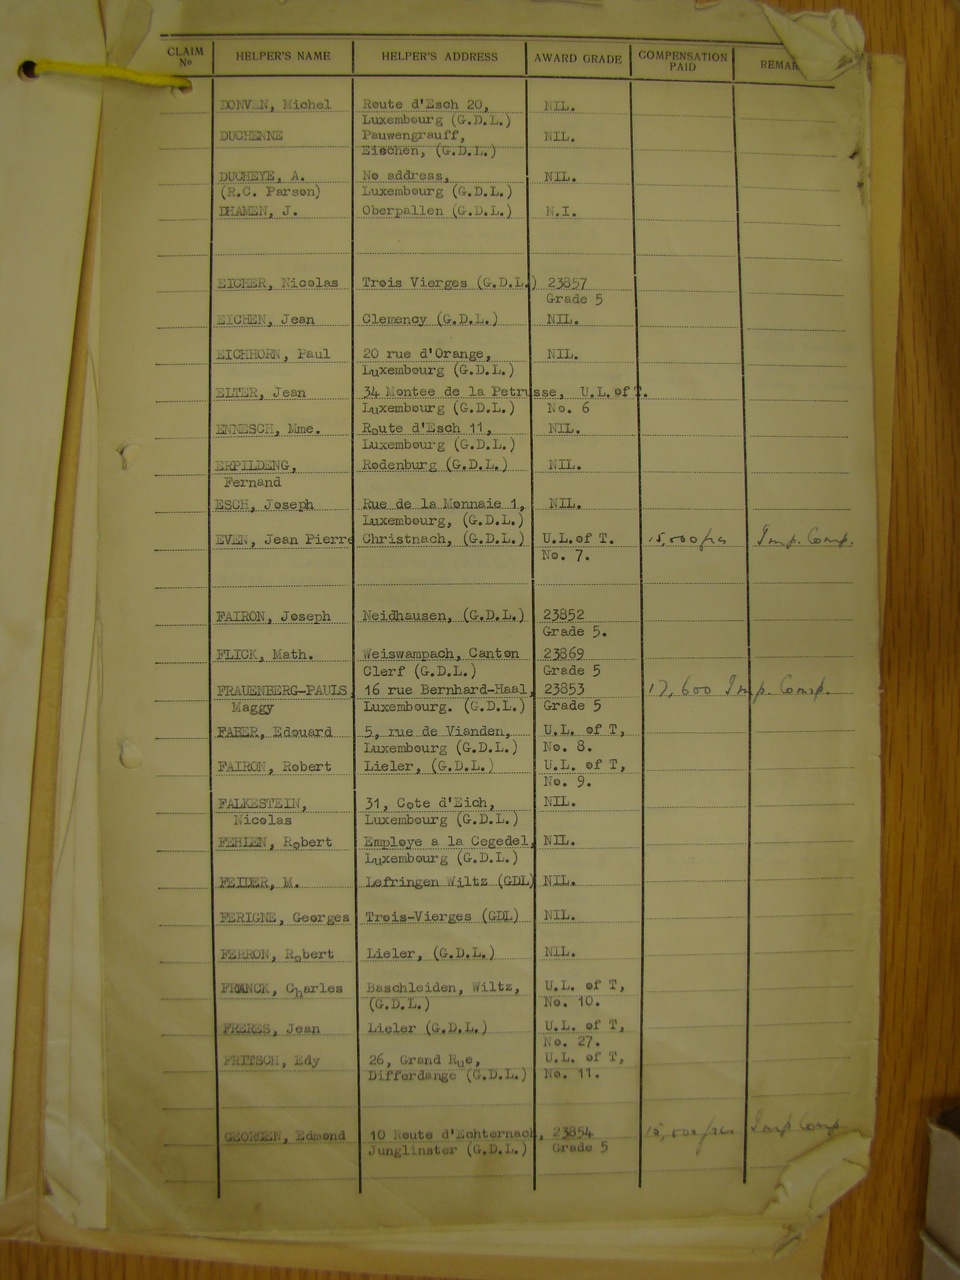 CLAIM No HELPER'S NAME HELPER'S ADDRESS AWARD GRADE COMPENSATION PAID REMAR
DONVEN, Michel Route d'Esch 20, NIL.
Luxembourg (G.D.L.)
DUCHENNE Pauwengrauff, NIL.
Eischen, (G.D.L.)
DUCHEYE, A. No address, NIL.
(R.C. Parson) Luxembourg (G.D.L.)
DHAMEN, J. Oberpallen (G.D.L.) N.I.
EICHER, Nicolas Trois Vierges (G.D.L.) 23857
Grade 5
EICHEN, Jean Clemency (G.D.L.) NIL.
EICHHORN, Paul 20 rue d'Orange, NIL.
Luxembourg (G.D.L.)
ELTER, Jean 34 Montee de la Petrusse, U.L.of T.
Luxembourg (G.D.L.) No. 6
ENNESCH, Mme. Route d'Esch 11, NIL.
Luxembourg (G.D.L.)
ERPILDENG, Rodenburg (G.D.L.) NIL.
Fernand
ESCH, Joseph Rue de la Monnaie 1, NIL.
Luxembourg, (G.D.L.)
EVEN, Jean Pierre Christnach, (G.D.L.) U.L.of T. 15,000 frs Imp. Comp.
No. 7.
FAIRON, Joseph Neidhausen, (G.D.L.) 23852
Grade 5.
FLICK, Math. Weiswampach, Canton 23869
Clerf (G.D.L.) Grade 5
FRAUENBERG-PAULS, 16 rue Bernhard-Haal, 23853 17,600 Imp. Comp.
Maggy Luxembourg. (G.D.L.) Grade 5
FABER, Edouard 5, rue de Vianden, U.L. of T,
Luxembourg (G.D.L.) No. 8.
FAIRON, Robert Lieler, (G.D.L.) U.L. of T,
No. 9.
FALKESTEIN, 31, Cote d'Eich, NIL.
Nicolas Luxembourg (G.D.L.)
FEHLEN, Robert Employe a la Cegedel, NIL.
Luxembourg (G.D.L.)
M. Lefringen Wiltz (GDL) NIL.
FERIGNE, Georges Trois-Vierges (GDL) NIL.
FERRON, Robert Lieler, (G.D.L.) NIL.
FRANCK, Charles Baschleiden, Wiltz, U.L. of T,
(G.D.L.) No. 10.
FRERES, Jean Lieler (G.D.L.) U.L. of T,
No. 27.
FRITSCH, Edy 26, Grand Rue, U.L. of T,
Differdange (G.D.L.) No. 11.
GEORGEN, Edmond 10 Route d'Echternach, 23854 15,000 frs Imp Comp
Junglinster (G.D.L.) Grade 5